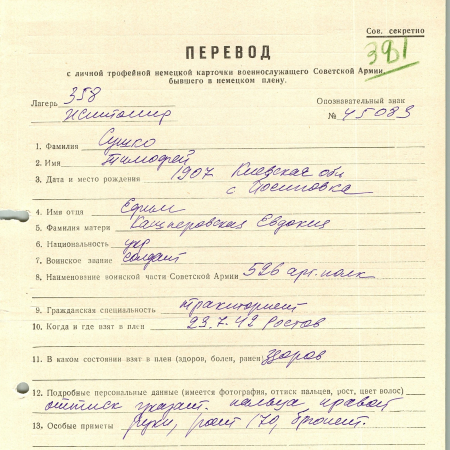 Сов. секретно
381
ПЕРЕВОД
с личной трофейной немецкой карточки военнослужащего Советской Армии,
бывшего в немецком плену.
Лагерь 358
Житомир
Опознавательный знак
№ 45083
1. Фамилия Сушко
2. Имя Тимофей
3. Дата и место рождения 1907 Киевская обл
с Осиповка
4. Имя отца Ефим
5. Фамилия матери Кашперовская Евдокия
6. Национальность укр
7. Воинское звание солдат
8. Наименование воинской части Советской Армии 526 арт. полк
9. Гражданская специальность тракторист
10. Когда и где взят в плен 23.7.42 Ростов
11. В каком состоянии взят в плен (здоров, болен, ранен) здоров
12. Подробные персональные данные (имеется фотография, оттиск пальцев, рост, цвет волос)
оттиск указат. пальца правой
13. Особые приметы руки, рост 170, брюнет.